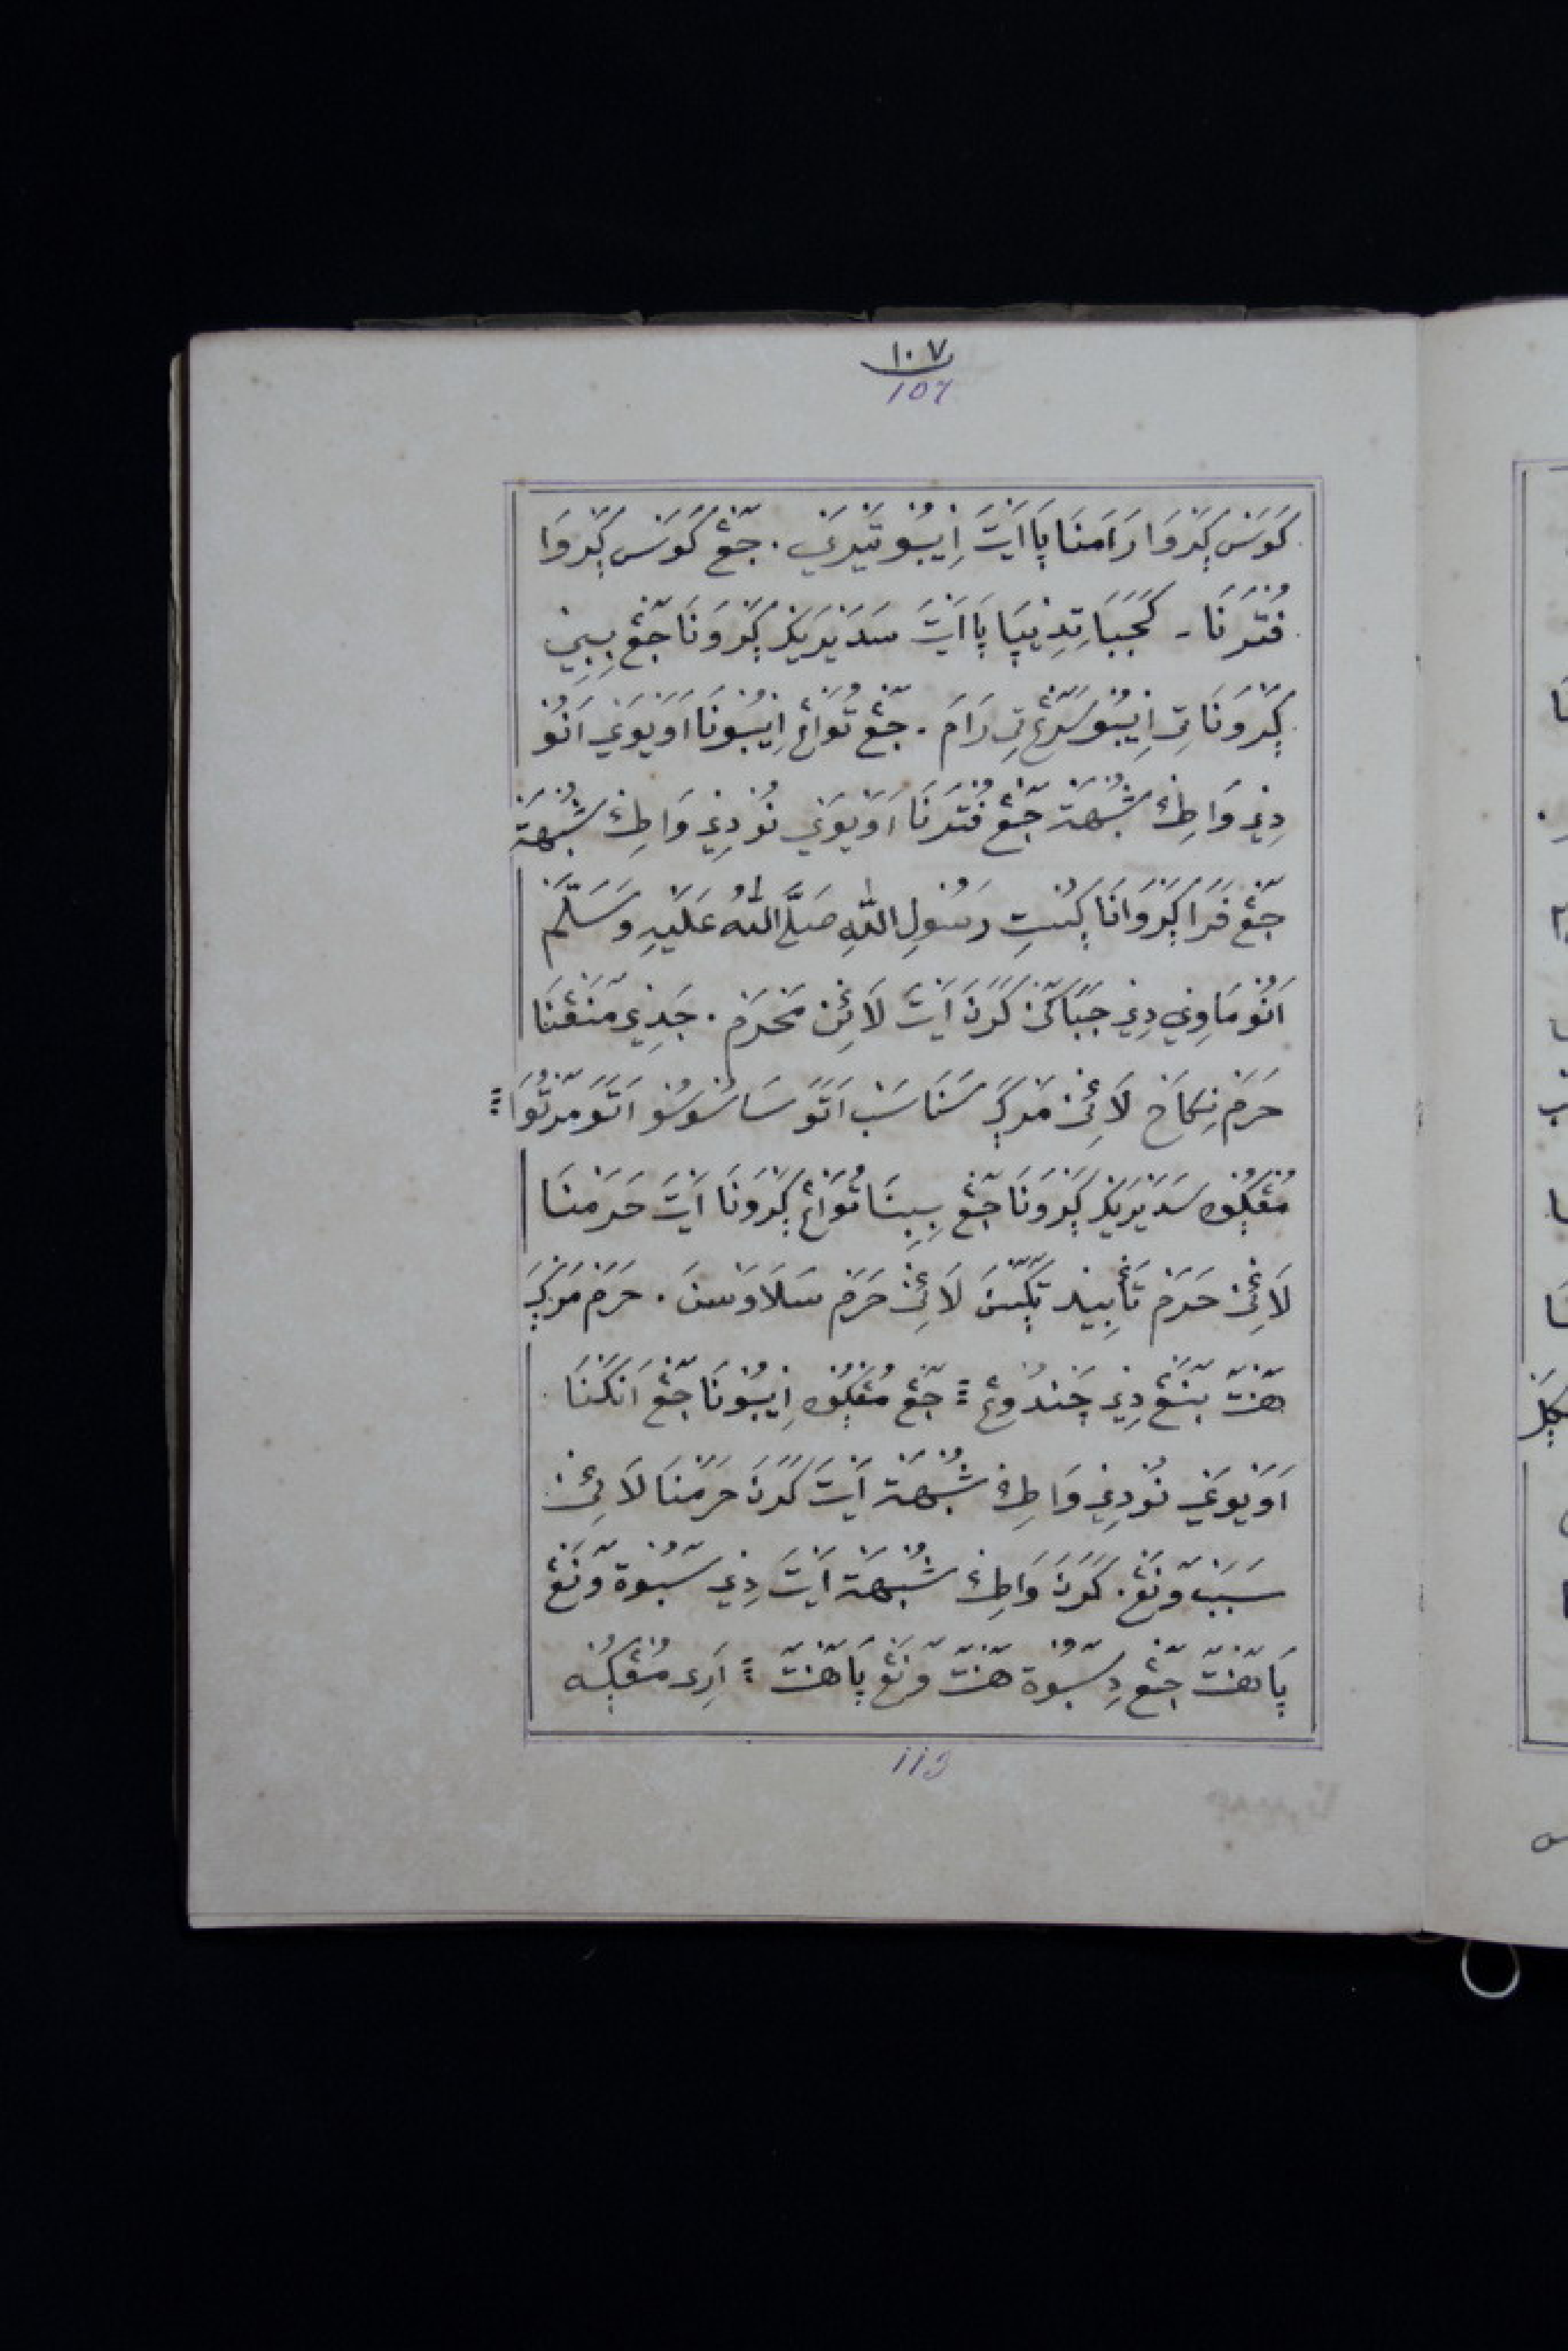 ١٠٧
107
كَوَسَ كِڮَرَوَا رَامَنَا ڽَاايَتَ اِيْبُوْ تَيْرَيْ . جَڠْ كَوَسَ كِڮَرَوَا
فُتَرَنَا - كَجَبَاتِدِيْڽَا ڽَاايَتَ سَدَيْرَيَكَرْ كِڮَرَوَنَا جَڠْ بِبِيْ
كِڮَرَوَنَا تِ اِيْبُوْ سَرَڠْ تِ رَامَ . جَڠْ تُوَاڠْ اِيْبُوْنَا اَوَيْوَيْ اَنُوْ
دِيْ وَاطِئْ شُبْهَةْ جَڠْ فُتَرَنَا اَوَيْوَيْ نُوْ دِيْ وَاطِئْ شُبْهَةْ
جَڠْ فَرَا كِڮَرَوَانَا كَڠْتِ رَسُوْلِ اللّٰهِ صَلَّى اللّٰهُ عَلَيْهِ وَسَلَّمَ
اَنُوْمَاوِيْ دِيْ جَبَاكَنْ كَرَنَ اَيْتَ لَائِنْ مَحْرَمْ . جَدِيْ مَنَڠْنَا
حَرَمْ نِكَاحْ لَائِنْ مَرْڮَ سَنَاسَبْ اَتَوَ سَاسُوْسُوْ اَتَوَ مَرَتُوَا
مُڠْڮُوْهْ سَدَيْرَيَكَرْ كِڮَرَوَنَا جَڠْ بِبِيْنَا تُوَاڠْ كِڮَرَوَنَا اَيْتَ حَرَمْنَا
لَائِنْ حَرَمْ تَأْبِيْدْ تَڮَسْنَ لَائِنْ حَرَمْ سَلَاوَسْنَ . حَرَمْ مَرْڮَ
هَنْتْ بَنَڠْ دِيْ چَنْدُوڠْ جَڠْ مُڠْڮُوْهْ اِيْبُوْنَا جَڠْ اَنَكْنَا
اَوَيْوَيْ نُوْدِيْ وَاطِئْ شُبْهَةْ اَيْتَ كَرَنَ حَرَمْنَا لَائِنْ
سَبَبْ وَنَڠْ . كَرَنَ وَاطِئْ شُبْهَةْ اَيْتَ دِيْ سَبُوْةْ وَنَڠْ
ڽَا هَنْتْ جَڠْ دِ سَبُوْةْ هَنْتْ وَنَڠْ ڽَا هَنْتْ اَرِىْ مُڠْڮُهْ
113